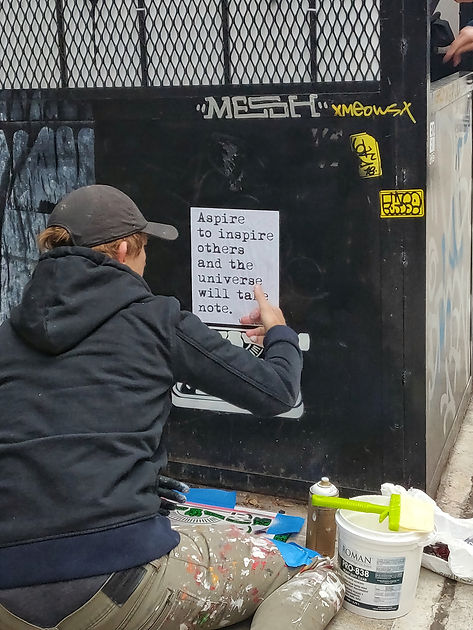 "MESH"
xMEOWSx
Aspire
to inspire
others
and the
universe
will take
note.
ROMAN
PRO-838